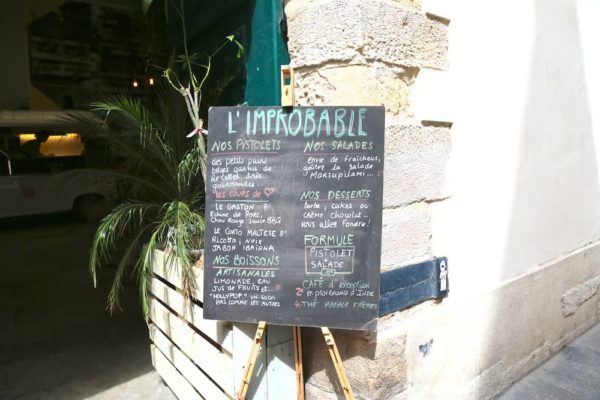 L'IMPROBABLE
NOS PISTOLETS
des petits pains
belges garnis de
recettes très
gourmandes...
LES COUPS DE
LE GASTON
Echine de Porc,
Chou Rouge Sauce BBQ
LE CORTO MALTESE 8€
RICOTTA, NOIX
JAMBON IBAIONA
NOS BOISSONS
ARTISANALES
LIMONADE, EAU
JUS DE FRUITS et...
"HOLLYPOP" UN SODA
PAS COMME LES AUTRES
NOS SALADES
envie de fraîcheur,
goûtez la Salade
Marsupilami...
NOS DESSERTS
tarte, cakes ou
crème chocolat...
vous allez Fondre!
FORMULE
PISTOLET
&
SALADE
CAFÉ D'EXCEPTION
en provenance d'Inde
THÉ MARIAGE FRÈRES